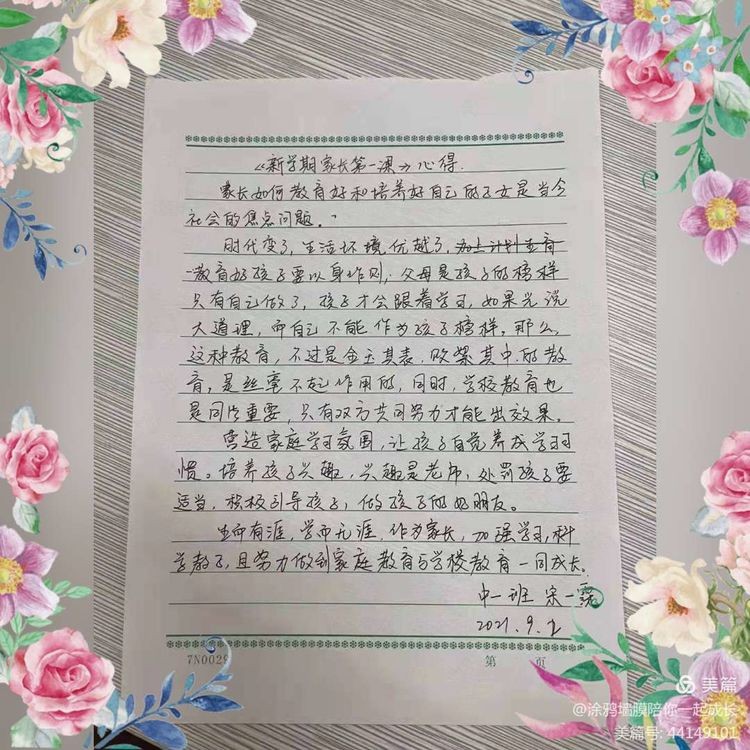 《新学期家长第一课》心得.
家长如何教育好和培养好自己的子女是当今
社会的焦点问题。
时代变了,生活环境优越了,
教育好孩子要以身作则,父母是孩子的榜样
只有自己做了,孩子才会跟着学习,如果光说
大道理,而自己不能作为孩子榜样。那么,
这种教育,不过是金玉其表,败絮其中的教
育,是丝毫不起作用的,同时,学校教育也
是同等重要,只有双方共同努力才能出效果。
营造家庭学习氛围,让孩子自觉养成学习习
惯。培养孩子兴趣,兴趣是老师,处罚孩子要
适当,积极引导孩子,做孩子的好朋友。
生而有涯,学而无涯,作为家长,加强学习,科
学教子,且努力做到家庭教育与学校教育一同成长。
中一班 宋一
2021.9.1
7N0029
第 页
美篇
@涂鸦墙膜陪你一起成长
美篇号: 44149101